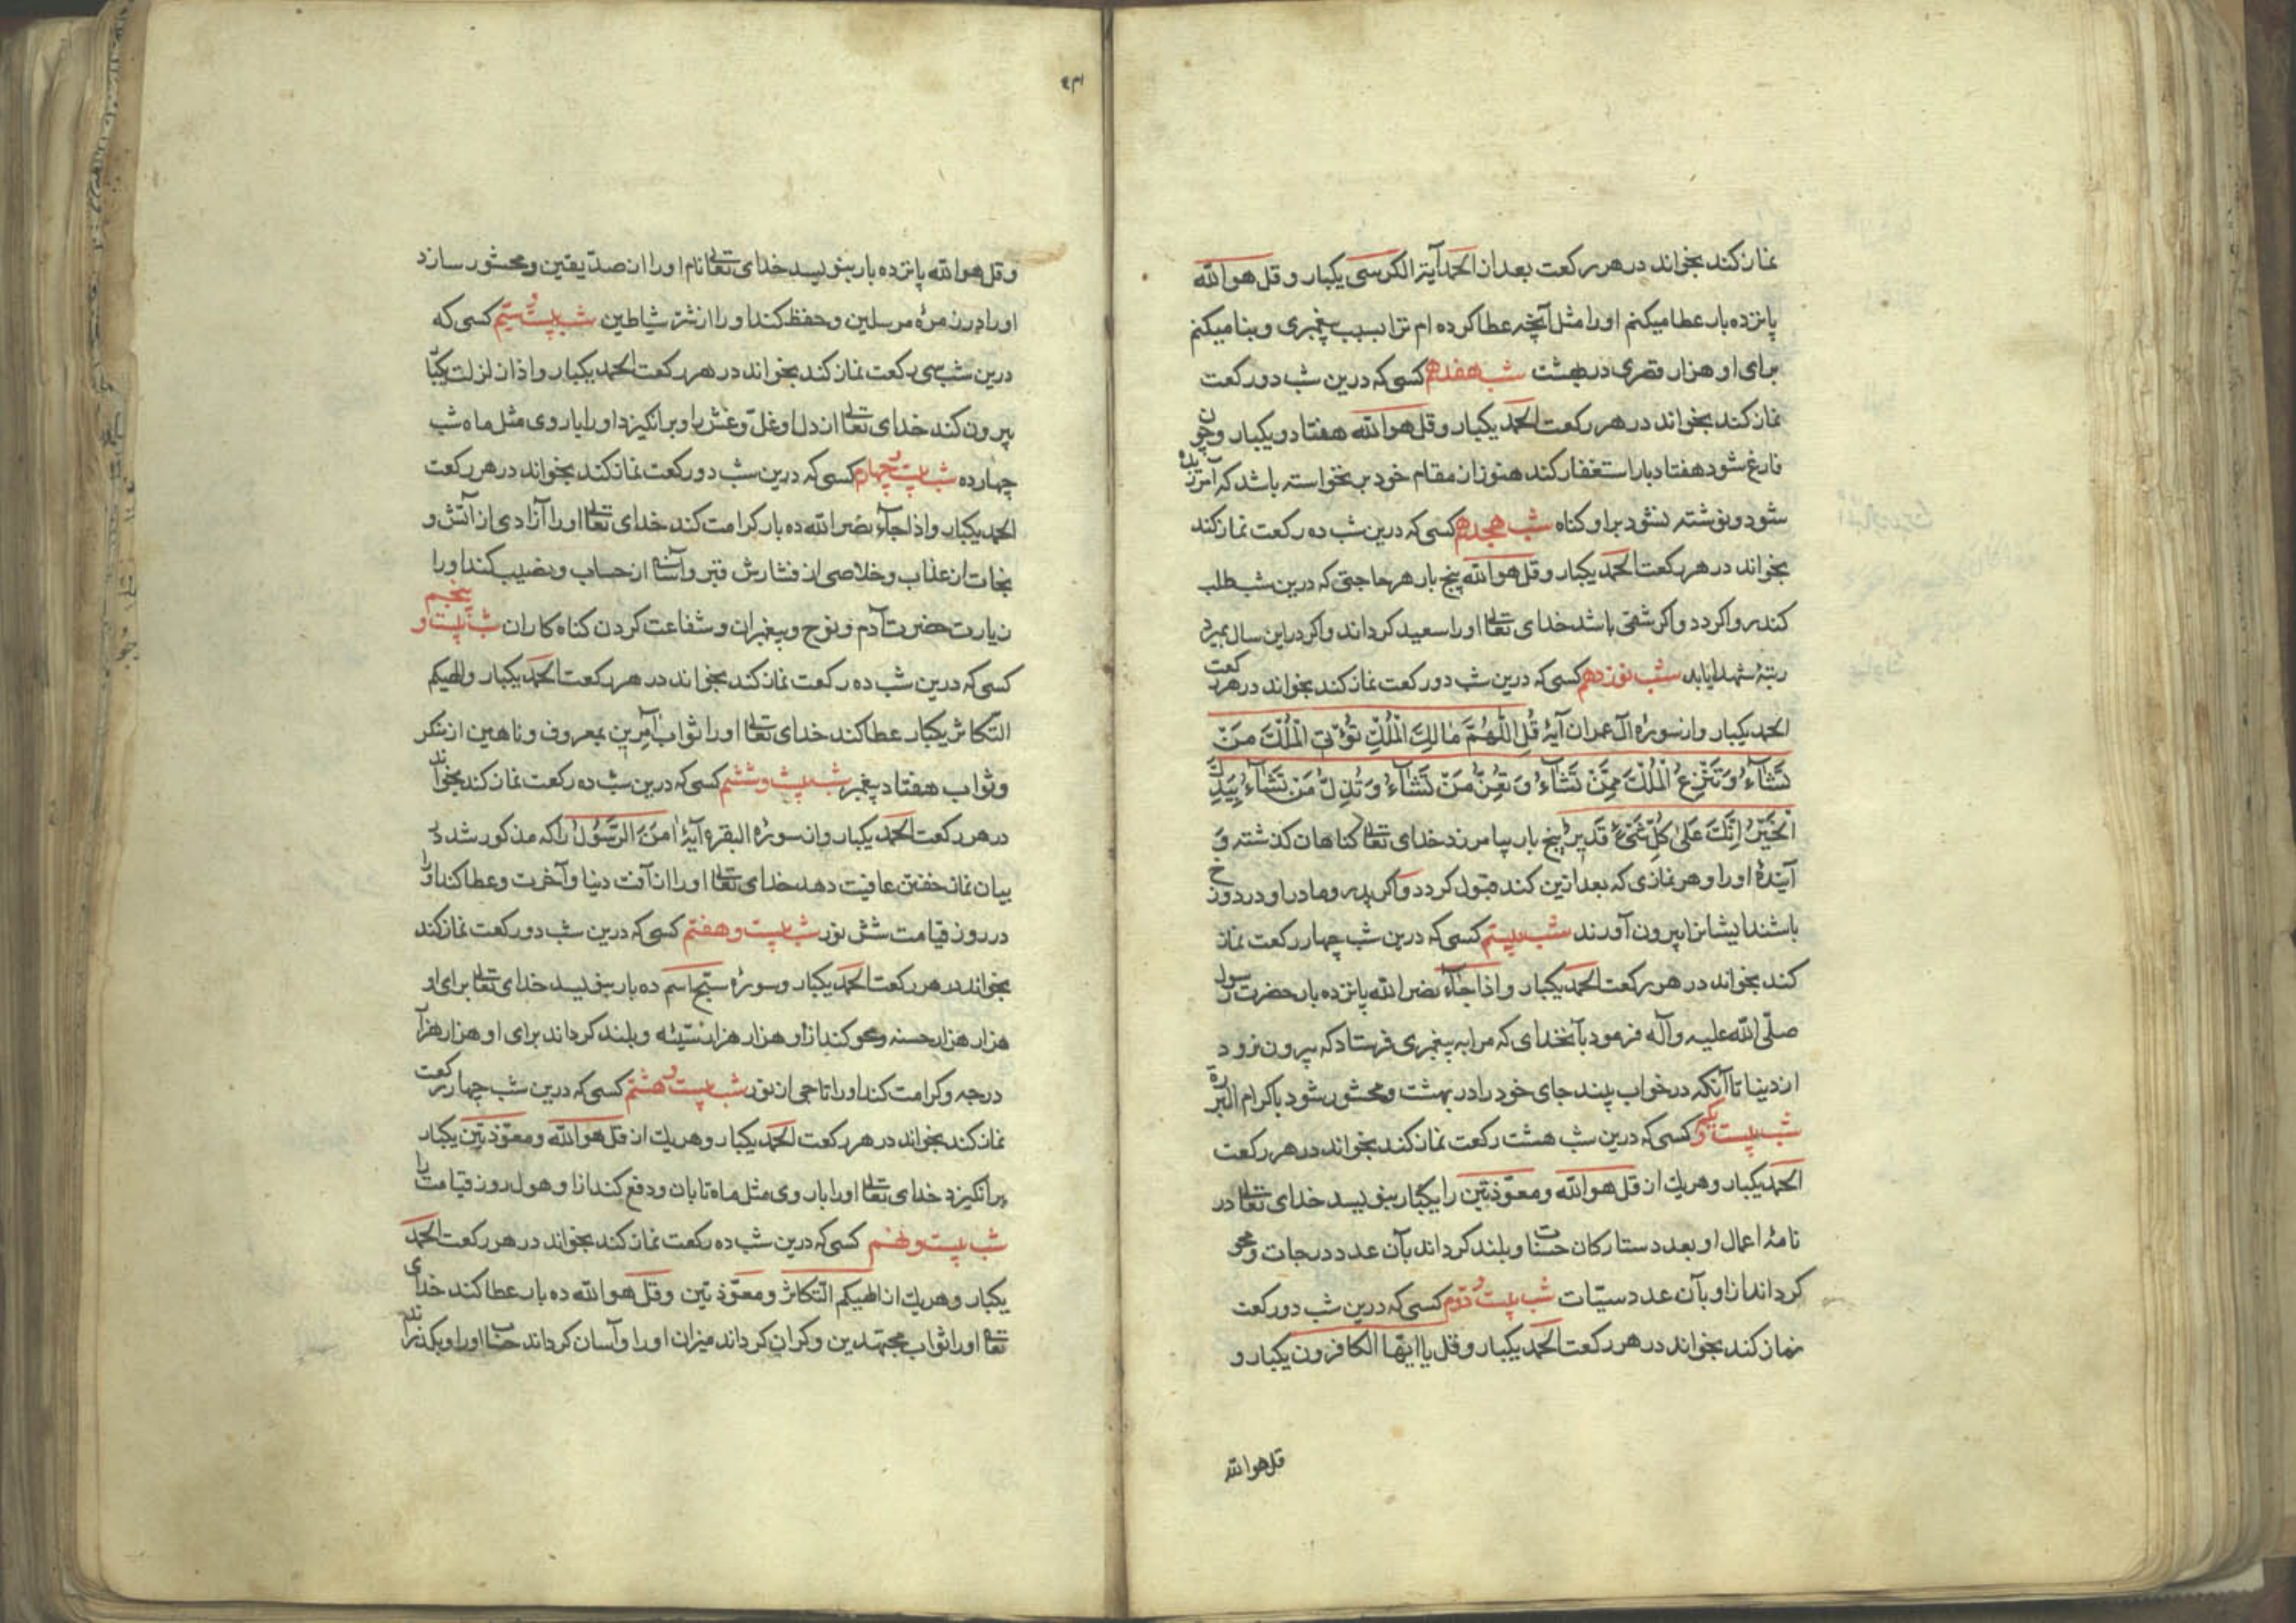 نماز کند بخواند در هر رکعت بعد از الحمد آیة الکرسی یکبار و قل هو الله
پانزده بار عطا میکنم او را مثل آنچه عطا کرده ام ترا بسبب پیغمبری و بنا میکنم
برای او هزار قصری در بهشت شب هفدهم کسی که درین شب دو رکعت
نماز کند بخواند در هر رکعت الحمد یکبار و قل هو الله هفتاد و یکبار و چون
فارغ شود هفتاد بار استغفار کند هنوز از مقام خود بر نخواسته باشد که آمرزیده
شود و نوشته نشود بر او کناه شب هجدهم کسی که درین شب ده رکعت نماز کند
بخواند در هر رکعت الحمد یکبار و قل هو الله پنج بار هر حاجتی که درین شب طلب
کند روا کردد و اکر شقی باشد خدای تعالی او را سعید کرداند و اکر در این سال بمیرد
رتبهٔ شهدا یابد شب نوزدهم کسی که درین شب دو رکعت نماز کند بخواند در هر رکعت
الحمد یکبار و از سورهٔ آل عمران آیهٔ قُلِ اللّٰهُمَّ مَالِكَ الْمُلْكِ تُؤْتِی الْمُلْكَ مَنْ
تَشَآءُ وَ تَنْزِعُ الْمُلْكَ مِمَّنْ تَشَآءُ وَ تُعِزُّ مَنْ تَشَآءُ وَ تُذِلُّ مَنْ تَشَآءُ بِیَدِكَ
الْخَیْرُ اِنَّكَ عَلٰی كُلِّ شَیْءٍ قَدِیرٌ پنج بار بیامرزد خدای تعالی کناهان کذشته و
آیندهٔ او را و هر نمازی که بعد ازین کند قبول کردد و اکر پدر و مادر او در دوزخ
باشند ایشانرا بیرون آورند شب بیستم کسی که درین شب چهار رکعت نماز
کند بخواند در هر رکعت الحمد یکبار و اذا جآء نصر الله پانزده بار حضرت رسول
صلّی الله علیه و آله فرمود بآنخدای که مرا به پیغمبری فرستاد که بیرون نرود
از دنیا تا آنکه در خواب بیند جای خود را در بهشت و محشور شود با کرام البررة
شب بیست و یکم کسی که درین شب هشت رکعت نماز کند بخواند در هر رکعت
الحمد یکبار و هر یك از قل هو الله و معوّذتین را یکبار بنویسد خدای تعالی در
نامهٔ اعمال او بعدد ستارکان حسنات و بلند کرداند بآن عدد درجات و محو
کرداند از او بآن عدد سیّات شب بیست و دوم کسی که درین شب دو رکعت
نماز کند بخواند در هر رکعت الحمد یکبار و قل یا ایّها الکافرون یکبار و
قل هو الله
و قل هو الله پانزده بار بنویسد خدای تعالی نام او را از صدّیقین و محشور سازد
او را در زمرهٔ مرسلین و حفظ کند او را از شرّ شیاطین شب بیست و سیّم کسی که
درین شب سی رکعت نماز کند بخواند در هر رکعت الحمد یکبار و اذا زلزلت یکبار
بیرون کند خدای تعالی از دل او غلّ و غش را و برانکیزد او را با روی مثل ماه شب
چهارده شب بیست و چهارم کسی که درین شب دو رکعت نماز کند بخواند در هر رکعت
الحمد یکبار و اذا جآء نصر الله ده بار کرامت کند خدای تعالی او را آزادی از آتش و
نجات از عذاب و خلاصی از فشارش قبر و آسانی از حساب و نصیب کند او را
زیارت حضرت آدم و نوح و پیغمبران و شفاعت کردن کناه کاران شب بیست و پنجم
کسی که درین شب ده رکعت نماز کند بخواند در هر رکعت الحمد یکبار و الهیکم
التّکاثر یکبار عطا کند خدای تعالی او را ثواب آمرین بمعروف و ناهین از منکر
و ثواب هفتاد پیغمبر شب بیست و ششم کسی که درین شب ده رکعت نماز کند بخواند
در هر رکعت الحمد یکبار و از سورهٔ البقره آیهٔ اٰمَنَ الرَّسُولُ را که مذکور شد در
بیان نماز خفتن عافیت دهد خدای تعالی او را از آفت دنیا و آخرت و عطا کند او را
در روز قیامت شش نور شب بیست و هفتم کسی که درین شب دو رکعت نماز کند
بخواند در هر رکعت الحمد یکبار و سورهٔ سبّح اسم ده بار بنویسد خدای تعالی برای او
هزار هزار حسنه و محو کند از او هزار هزار سیّئه و بلند کرداند برای او هزار هزار
درجه و کرامت کند او را تاجی از نور شب بیست و هشتم کسی که درین شب چهار رکعت
نماز کند بخواند در هر رکعت الحمد یکبار و هر یك از قل هو الله و معوّذتین یکبار
برانکیزد خدای تعالی او را با روی مثل ماه تابان و دفع کند از او هول روز قیامت را
شب بیست و نهم کسی که درین شب ده رکعت نماز کند بخواند در هر رکعت الحمد
یکبار و هر یك از الهیکم التّکاثر و معوّذتین و قل هو الله ده بار عطا کند خدای
تعالی او را ثواب مجتهدین و کران کرداند میزان او را و آسان کرداند حساب او را و بکذراند